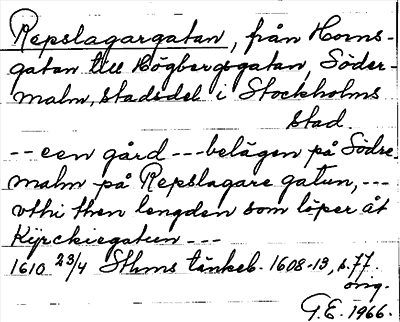 Repslagargatan, från Horns-
gatan till Högbergsgatan, Söder-
malm, stadsdel i Stockholms
stad.
-- een gård --- belägen på Södre-
malm på Repslagare gatun, ---
vthi then lengden som löper åt
Kyrckiegatun ---
1610 23/4 Sthms tänkeb. 1608-13, s. 77.
orig.
G.E. 1966.